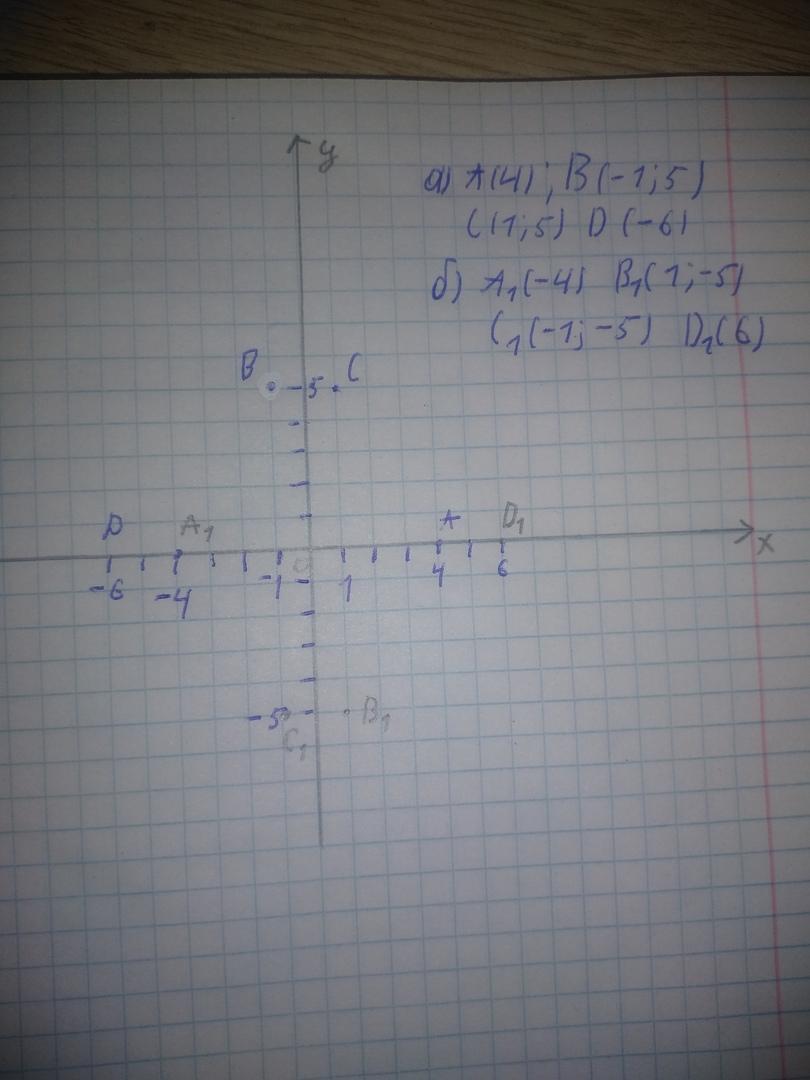 y
а) A(4); B(-1;5)
C(1;5) D(-6)
б) A₁(-4) B₁(1;-5)
C₁(-1;-5) D₁(6)
B 5 C
D A₁ A D₁
x
0
-6 -4 -1 1 4 6
-5 B₁
C₁